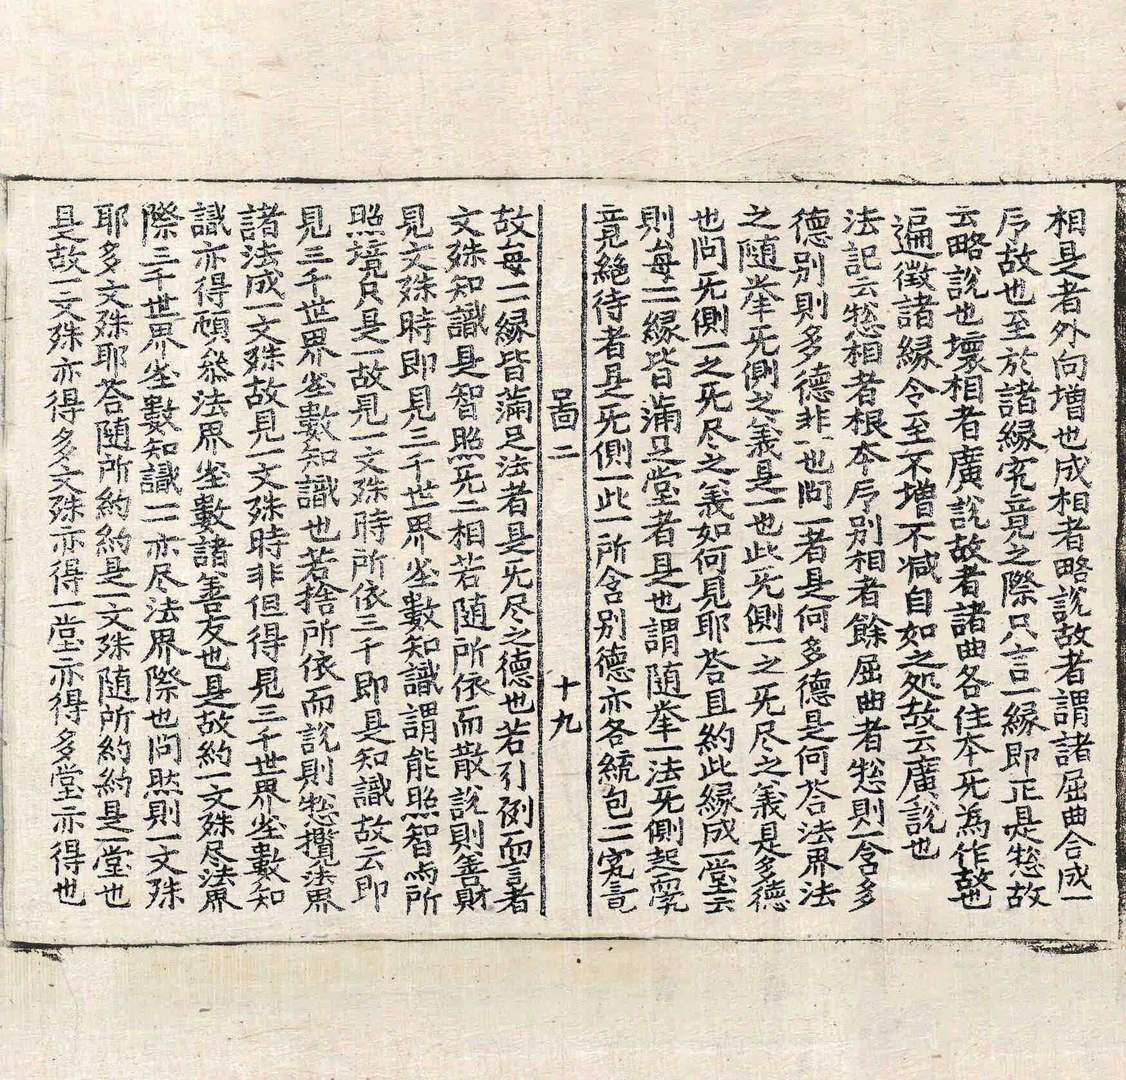 相是者外向増也成相者略說故者謂諸屈曲合成一
㐧故也至於諸縁究竟之際只言一縁即正是惣故
云略說也壞相者廣說故者諸曲各住本无為作故也
遍徵諸縁令至不増不减自如之処故云廣說也
法記云惣相者根本㐧別相者餘屈曲者惣則一含多
德別則多德非一也問一者是何多德是何荅法界法
之随举无側之義是一也此无側一之无尽之義是多德
也問无側一之无尽之義如何見耶荅且約此縁成一堂云
則每一一縁皆滿足堂者是也謂随举一法无側起
竟絶待者是无側一此一所含別德亦各統包一一究竟
啚二 十九
故每一一縁皆滿足法者是无尽之德也若引例而言者
文殊知識是智照无二相若随所依而散說則善財
見文殊時即見三千世界尘數知識謂能照智为所
照境只是一故見一文殊時所依三千即是知識故云即
見三千世界尘數知識也若捨所依而說則惣攬法界
諸法成一文殊故見一文殊時非但得見三千世界尘數知
識亦得頓叅法界尘數諸善友也是故約一文殊尽法界
際三千世界尘數知識一一亦尽法界際也問㷊則一文殊
耶多文殊耶荅随所約約是一文殊随所約約是一堂也
是故一文殊亦得多文殊亦得一堂亦得多堂亦得也